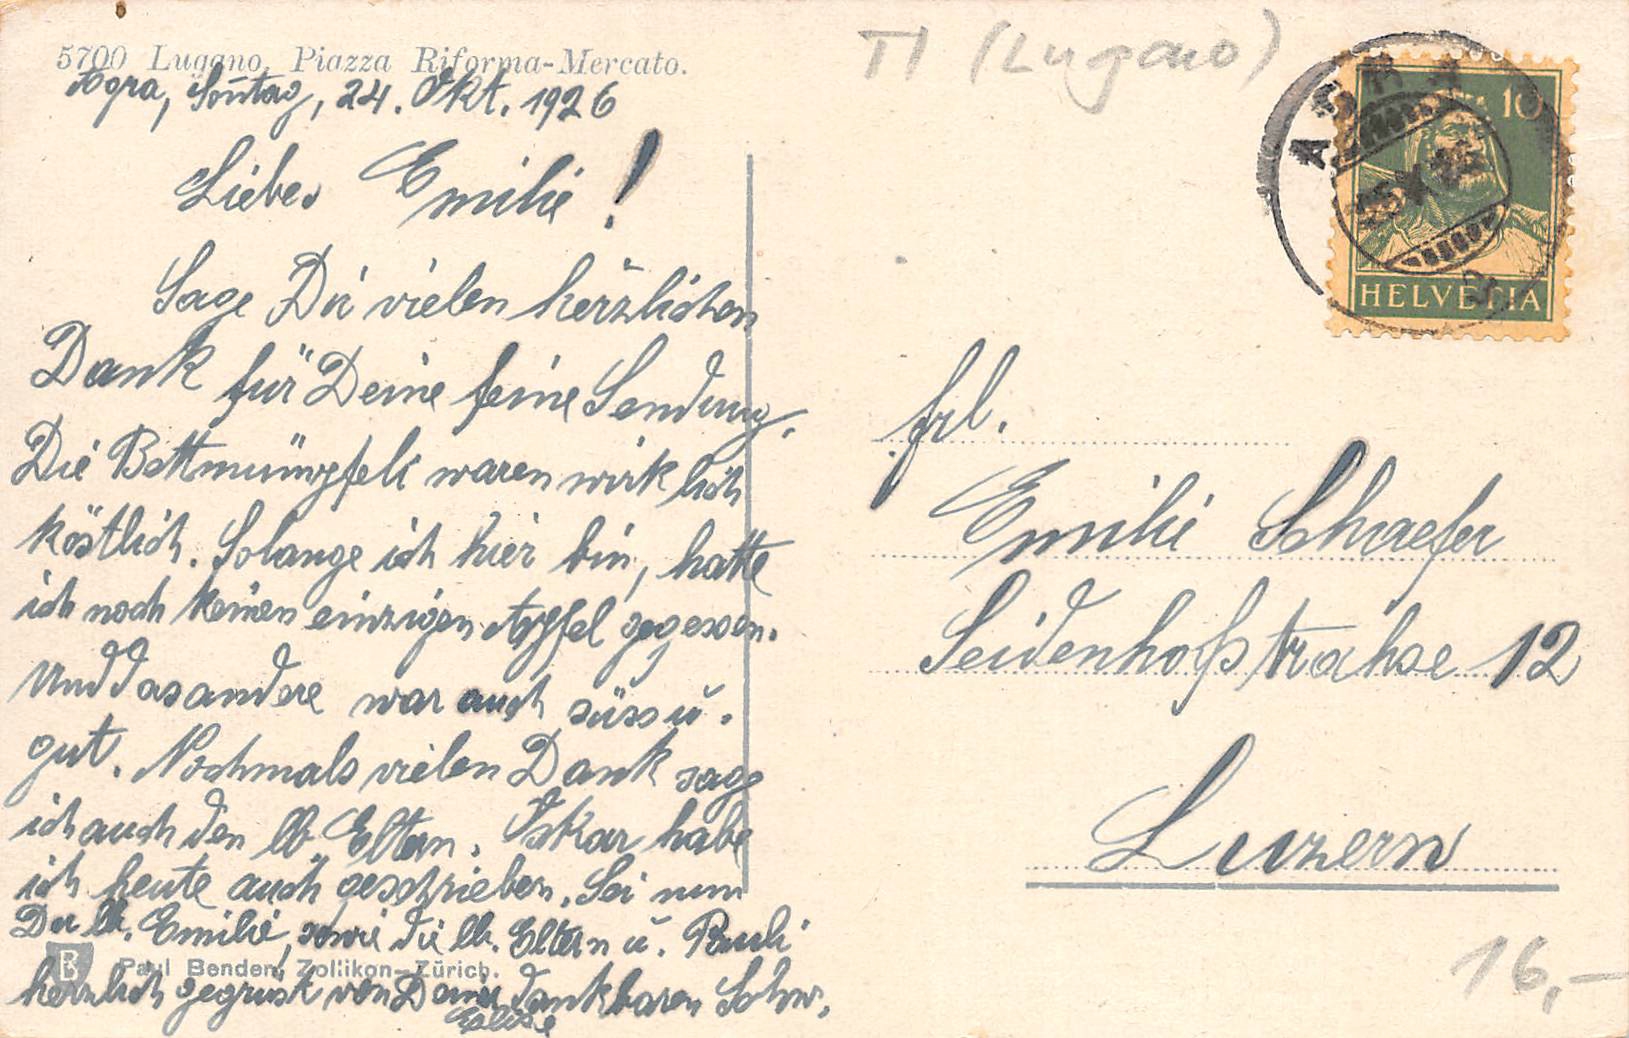 5700 Lugano, Piazza Riforma-Mercato.
TI (Lugano)
Agra, Sonntag, 24. Okt. 1926
Liebes Emilie!
Sage Dir vielen herzlichen
Dank für Deine feine Sendung.
Die waren wirklich
köstlich. Solange ich hier bin, hatte
ich noch keinen einzigen Apfel gegessen.
Und das andere war auch süss u.
gut. Nochmals vielen Dank sage
ich auch den lb Eltern. Oskar habe
ich heute auch geschrieben. Sei nun
Du lb. Emilie, sowie die lb. Eltern u. Pauli
herzlich gegrüsst von Deiner dankbaren Schw.
Elise
B
Paul Bender, Zollikon-Zürich.
AGRA
10
HELVETIA
Frl.
Emilie Schaefer
Seidenhofstrahse 12
Luzern
16,-